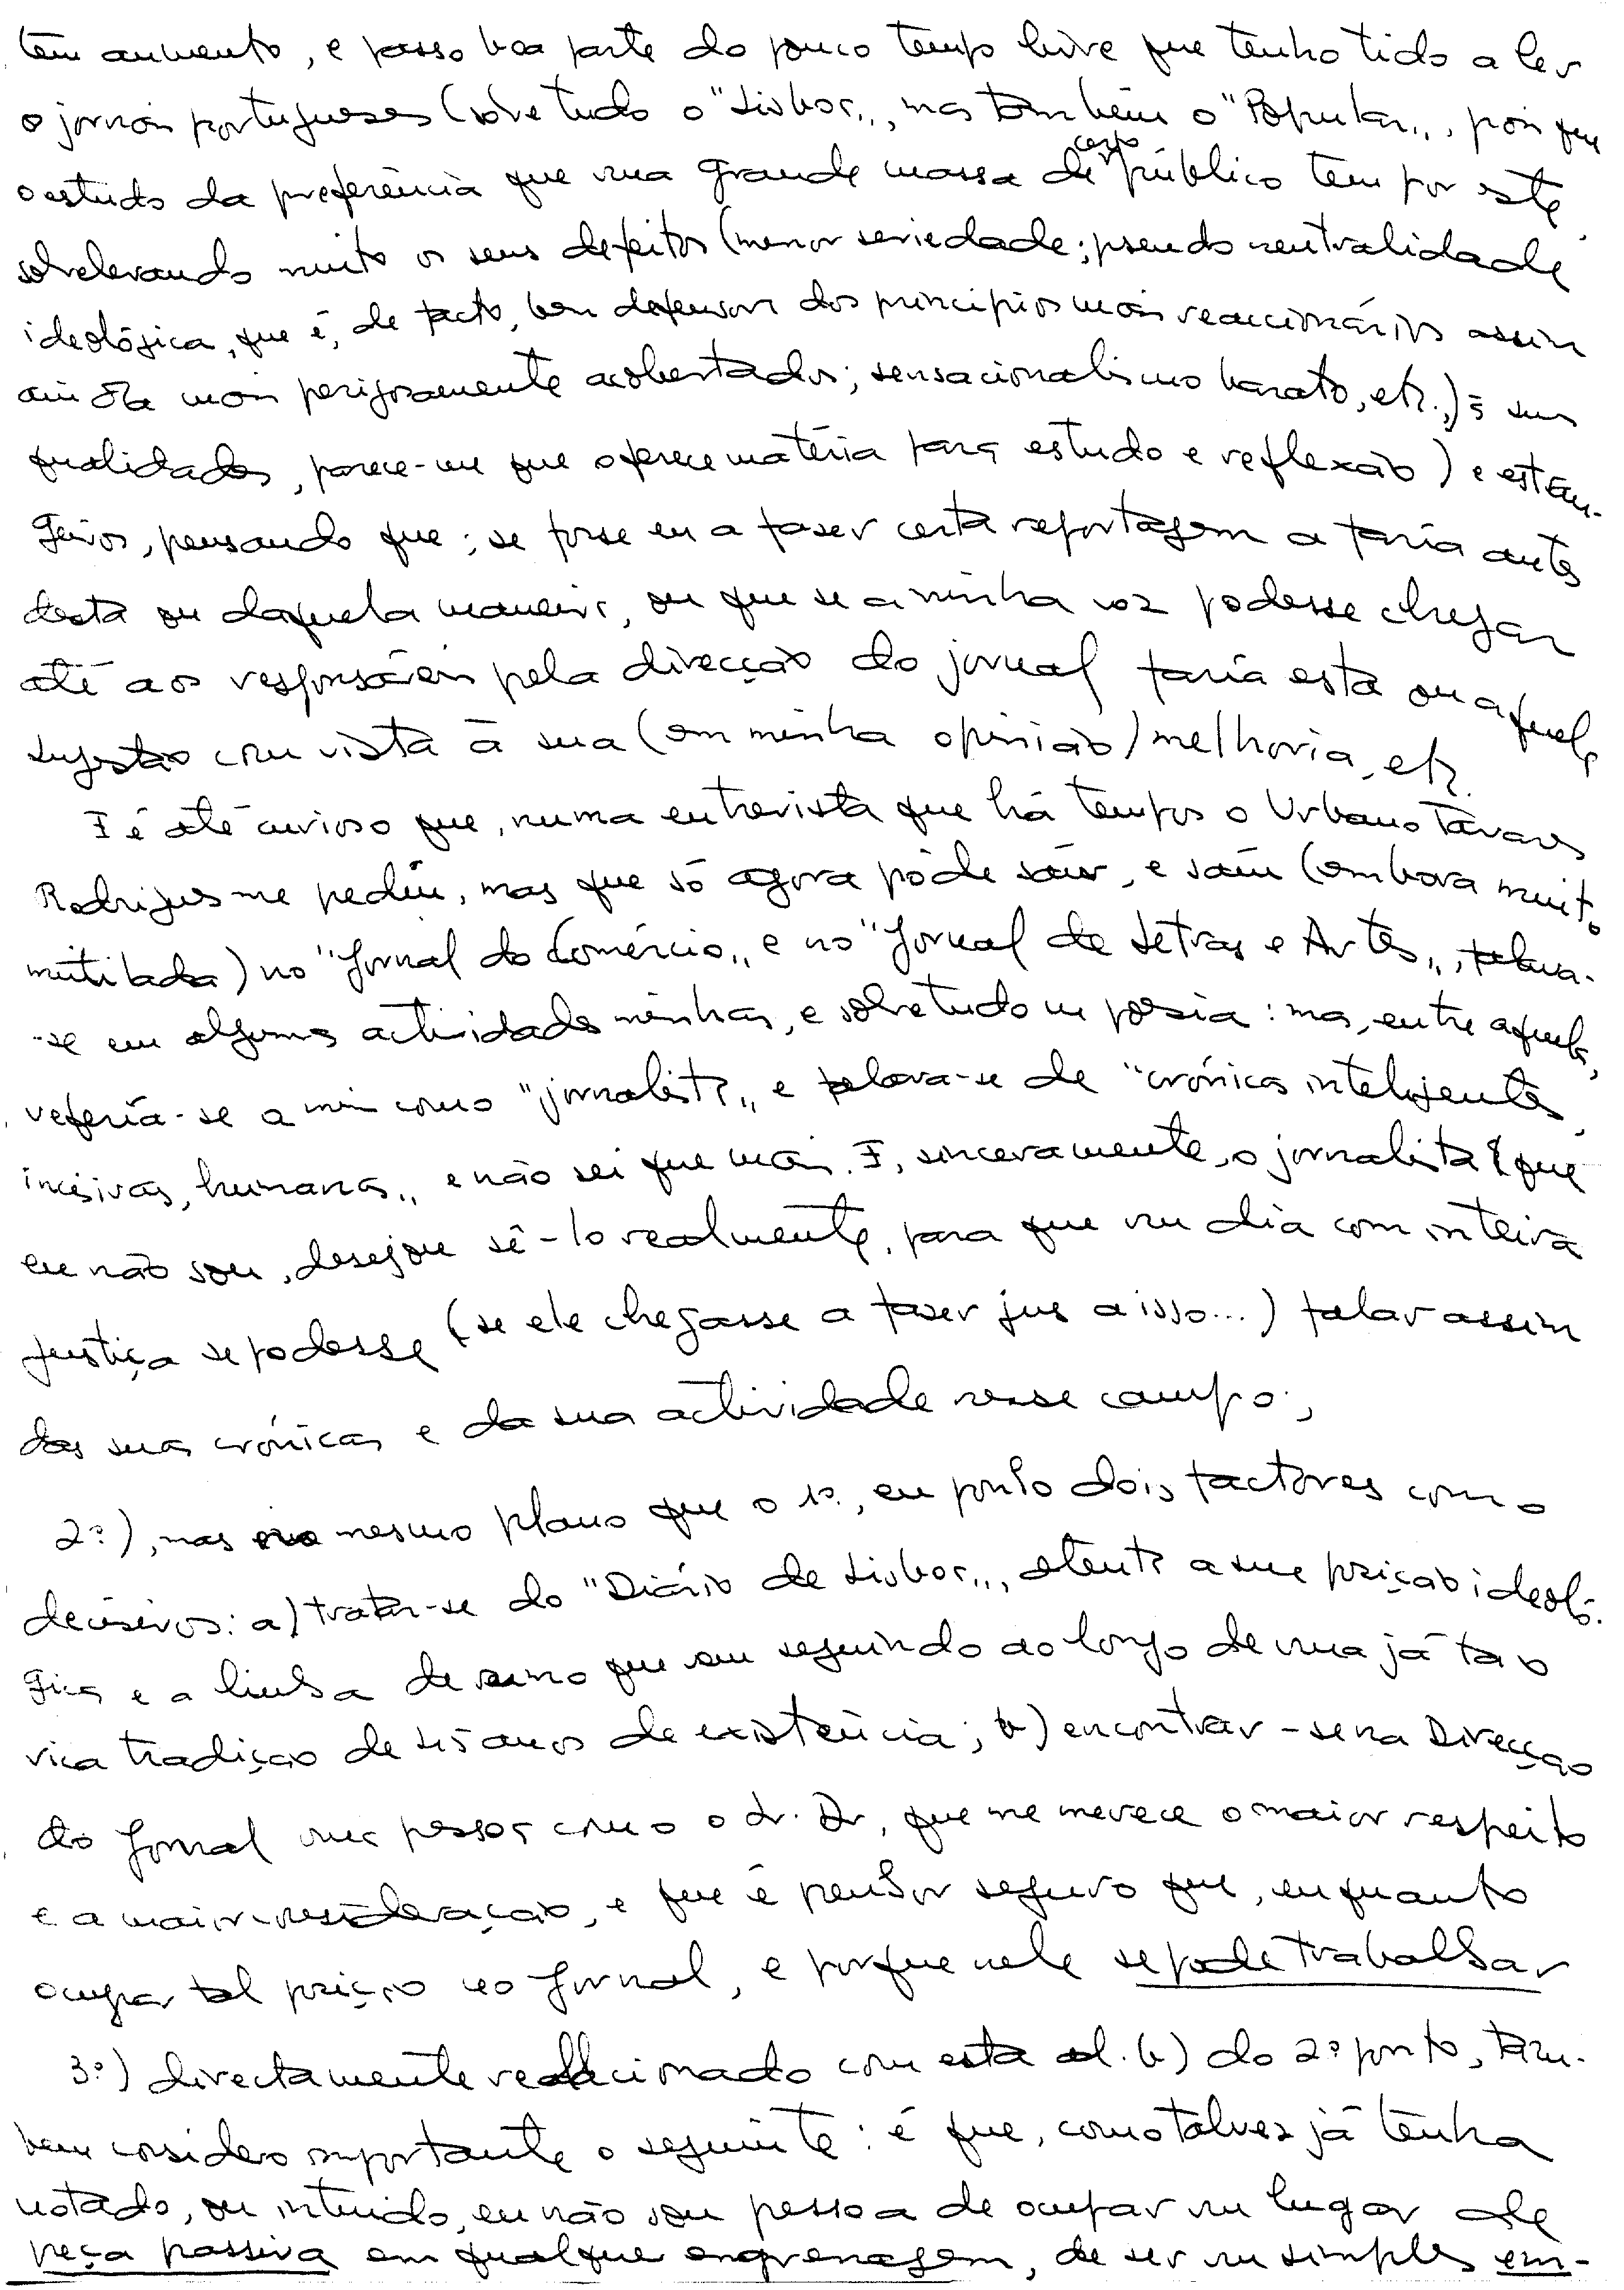 tem aumento, e passo boa parte do pouco tempo livre que tenho tido a ler
o jornais portugueses (sobretudo o "Lisboa", mas também o "Popular", pois que
o estudo da preferência que uma grande massa de certo público tem por este,
sobrelevando muito os seus defeitos (menor seriedade; pseudo neutralidade
ideológica, que é, de facto, bem defensora dos princípios mais reaccionários assim
ainda mais perigosamente acobertados; sensacionalismo barato, etc.,) às suas
qualidades, parece-me que oferece matéria para estudo e reflexão) e estran-
geiros, pensando que; se fosse eu a fazer certa reportagem a faria antes
desta ou daquela maneira, ou que se a minha voz podesse chegar
até aos responsáveis pela direcção do jornal faria esta ou aquela
sugestão com vista à sua (em minha opinião) melhoria, etc.
E é até curioso que, numa entrevista que há tempos o Urbano Tavares
Rodrigues me pediu, mas que só agora pôde sair, e saiu (embora muito
mutilada) no "Jornal do Comércio" e no "Jornal de Letras e Artes", falava-
-se em algumas actividades minhas, e sobretudo na poesia: mas, entre aquelas,
referia-se a mim como "jornalista" e falava-se de "crónicas inteligentes,
incisivas, humanas" e não sei que mais. E, sinceramente, o jornalista que
eu não sou, desejou sê-lo realmente, para que um dia com inteira
justiça se podesse (se ele chegasse a fazer jus a isso...) falar assim
das suas crónicas e da sua actividade nesse campo;
2º), mas no mesmo plano que o 1º, eu ponho dois factores como
decisivos: a) tratar-se do "Diário de Lisboa", atenta a sua posição ideoló-
gica e a linha de rumo que vem seguindo ao longo de uma já tão
rica tradição de 45 anos de existência; b) encontrar-se na Direcção
do Jornal uma pessoa como o dr. Dr, que me merece o maior respeito
e a maior consideração, e que é penhor seguro que, enquanto
ocupar tal posição no Jornal, e porque nele se pode trabalhar
3º) directamente relacionado com esta al. b) do 2º ponto, tam-
bém considero importante o seguinte: é que, como talvez já tenha
notado, ou intuído, eu não sou pessoa de ocupar um lugar de
peça passiva em qualquer engrenagem, de ser um simples em-